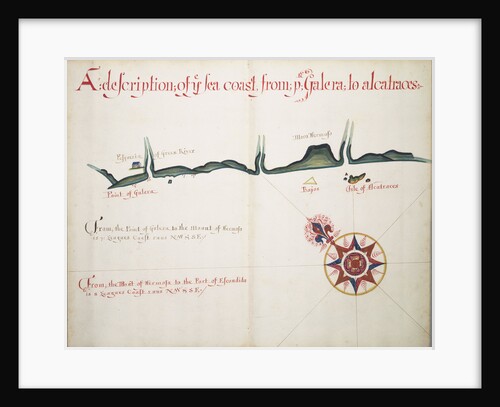 A description of yᵉ sea coast from pᵗ Galera to alcatraces
Mont Hermoso
of Green River
Point of Galera
Bajos
Isle of Alcatraces
From the Point of Galera to the Mount of Hermoso
is 7 Leagues Coast runs N.W. & S.E.
From the Mont of Hermoso to the Port of Escondido
is 2 Leagues Coast runs N.W. & S.E.